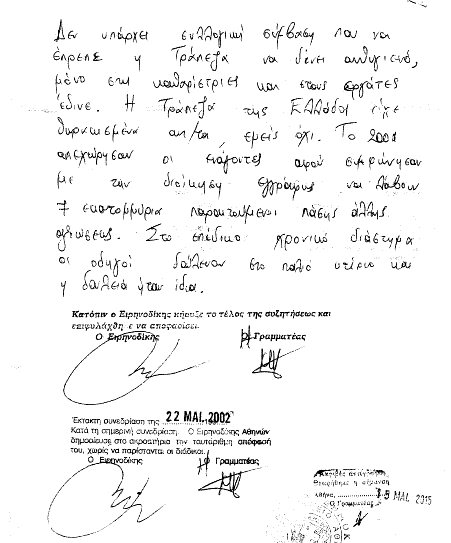 Δεν υπάρχει συλλογική σύμβαση που να
έπρεπε η Τράπεζα να δίνει ανθυγιεινό,
μόνο στις καθαρίστριες και στους εργάτες
έδινε. Η Τράπεζα της Ελλάδος είχε
θωρακισμένα αυτ/τα, εμείς όχι. Το 2001
απεχώρησαν οι ενάγοντες αφού συμφώνησαν
με την διοίκηση εγγράφως να λάβουν
7 εκατομμύρια παραιτούμενοι πάσης άλλης
αξιώσεως. Στο επίδικο χρονικό διάστημα
οι οδηγοί δούλευαν στο παλιό κτίριο και
η δουλειά ήταν ίδια.
Κατόπιν ο Ειρηνοδίκης κήρυξε το τέλος της συζητήσεως και
επιφυλάχθηκε να αποφασίσει.
Ο Ειρηνοδίκης Γραμματέας
Έκτακτη συνεδρίαση της 22 ΜΑΙ. 2002
Κατά τη σημερινή συνεδρίαση. Ο Ειρηνοδίκης Αθηνών
δημοσίευσε στο ακροατήριο την ταυτάριθμη απόφασή
του, χωρίς να παρίστανται οι διάδικοι.
Ο Ειρηνοδίκης Γραμματέας
Ακριβές αντίγραφο
Θεωρήθηκε η σήμανση
Αθήνα, 15 ΜΑΙ. 2015
Ο Γραμματέας